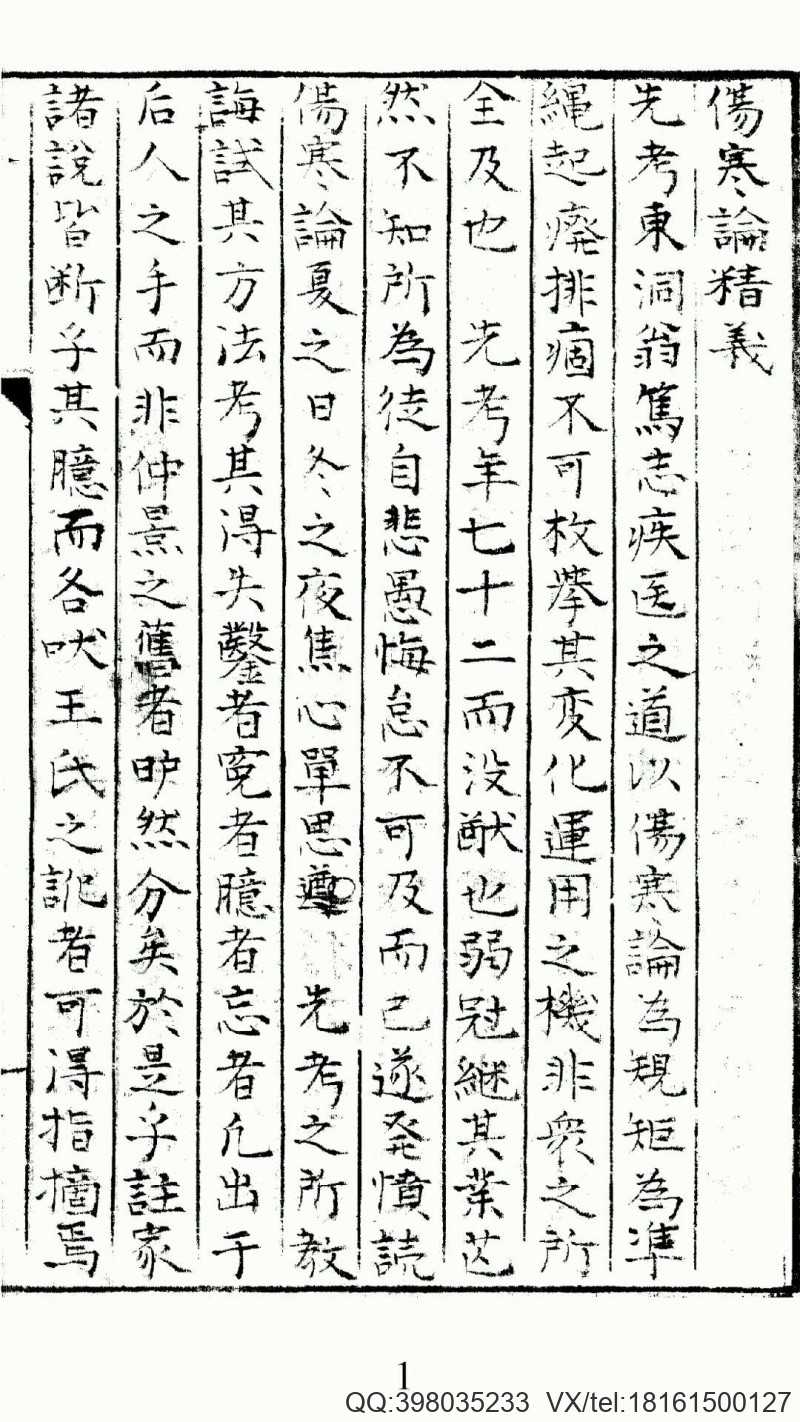 傷寒論精義
先考東洞翁篤志疾医之道以傷寒論為規矩為準
繩起癈排痼不可枚挙其変化運用之機非衆之所
全及也　先考年七十二而没猷也弱冠継其業芒
然不知所為徒自悲愚悔怠不可及而已遂発憤読
傷寒論夏之日冬之夜焦心單思遵　先考之所教
誨試其方法考其得失鑿者寃者臆者忘者凢出于
后人之手而非仲景之舊者昈然分矣於是乎註家
諸說皆断乎其臆而各吠王氏之訛者可得指摘焉
1
QQ:398035233 VX/tel:18161500127